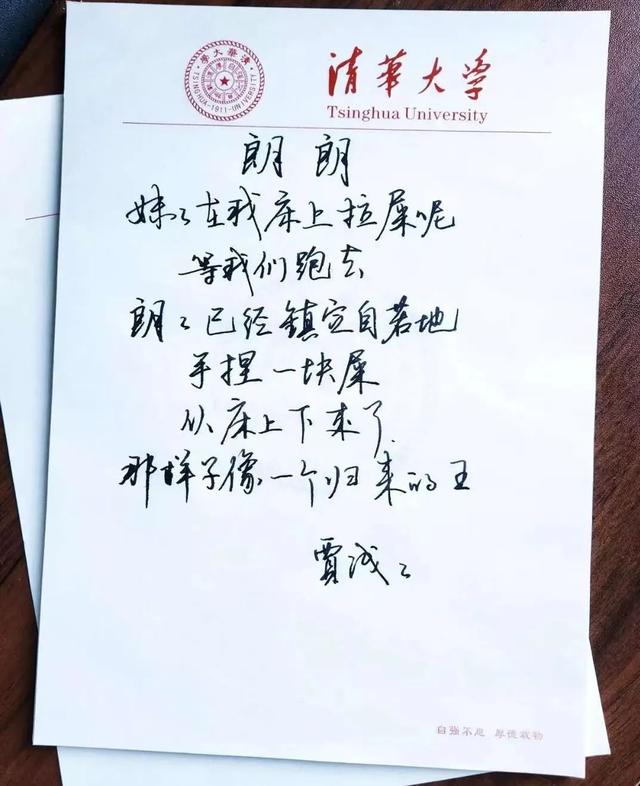 清華大学
TSINGHUA-1911-UNIVERSITY
清華大學
Tsinghua University
朗朗
妹々在我床上拉屎呢
等我们跑去
朗々已经镇定自若地
手捏一块屎
从床上下来了
那样子像一个归来的王
贾浅々
自强不息 厚德载物